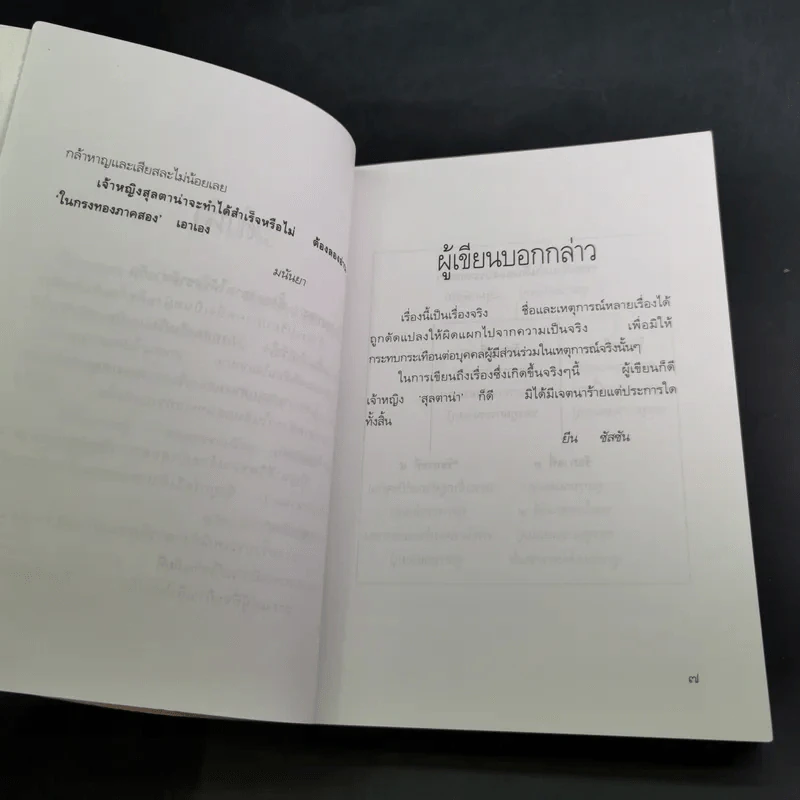 กล้าหาญและเสียสละไม่น้อยเลย
เจ้าหญิงสุลตาน่าจะทำได้สำเร็จหรือไม่ ต้องลอง
'ในกรงทองภาคสอง' เอาเอง
มนันยา
ผู้เขียนบอกกล่าว
เรื่องนี้เป็นเรื่องจริง ชื่อและเหตุการณ์หลายเรื่องได้
ถูกดัดแปลงให้ผิดแผกไปจากความเป็นจริง เพื่อมิให้
กระทบกระเทือนต่อบุคคลผู้มีส่วนร่วมในเหตุการณ์จริงนั้นๆ
ในการเขียนถึงเรื่องซึ่งเกิดขึ้นจริงๆนี้ ผู้เขียนก็ดี
เจ้าหญิง 'สุลตาน่า' ก็ดี มิได้มีเจตนาร้ายแต่ประการใด
ทั้งสิ้น
ยีน ซัสซัน
๗